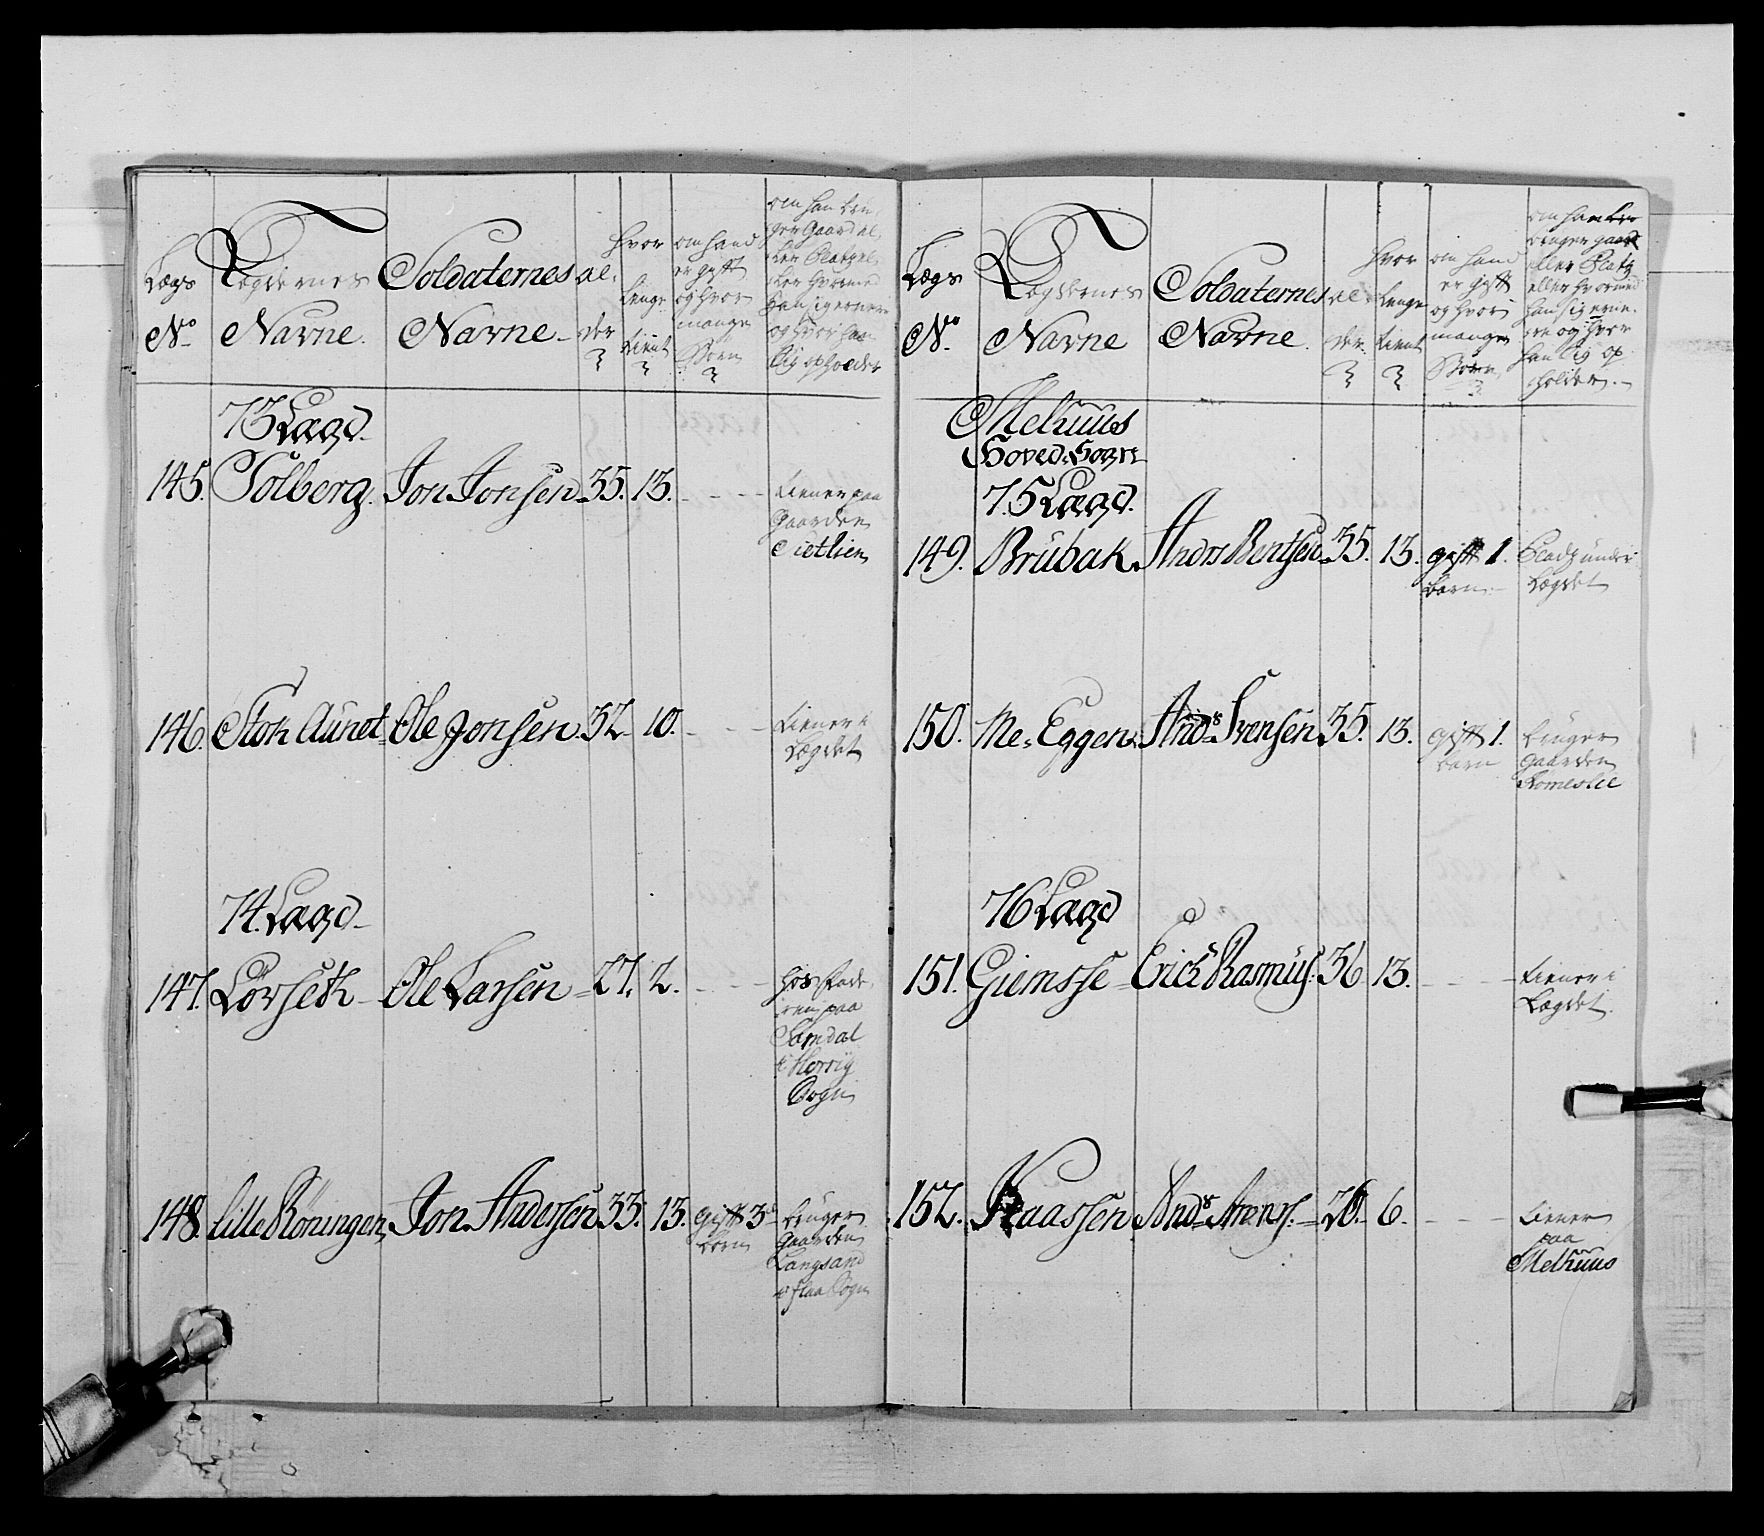 Lægs
No
Lægdernes
Navne.
Soldaternes
Navne
al-
der
Hvor
lenge
tient
om hand
er gift
og hvor
mange
Børn
om han bru-
ger Gaard el-
ler Platz el-
ler hvormed
han sig ernerer
og hvor han
sig opholder
73 Lægd
145. Solberg. Jon Jonsen 35. 13. - - - tiener paa
Gaarden
146. Stok Aunet Ole Jonsen. 32. 10. - - - tiener i
Lægdet
74. Lægd
147. Lørseth Ole Larsen 27. 2. - - - hos
paa
Samdal
i Horrig
Sogn
148. lille Røningen Jon Andersen 33. 13. gift 3
børn
bruger
Gaarden
Langsand
i flaa Sogn
Lægs
No.
Lægdernes
Navne
Soldaternes
Navne.
al-
der
Hvor
lenge
tient
om hand
er gift
og hvor
mange
Børn
om han
bruger gaard
eller Platz
eller hvormed
han sig erne-
re og hvor
han sig op
holder.
Melhuus
Hoved Sogn
75 Lægd.
149. Brübak. Anders Bentsen 35. 13. gift 1.
barn
Pladz under
Lægdet
150. Me. Eggen. Ands Svensen 35. 13. gift 1.
barn
bruger
gaarden
Romeslie
76 Lægd
151. Giemsse Erich Rasmus. 36 13. - - - tiener i
Lægdet.
152. Kaassen Ands Arens. 26. 6. - - - tiener
paa
Melhuus